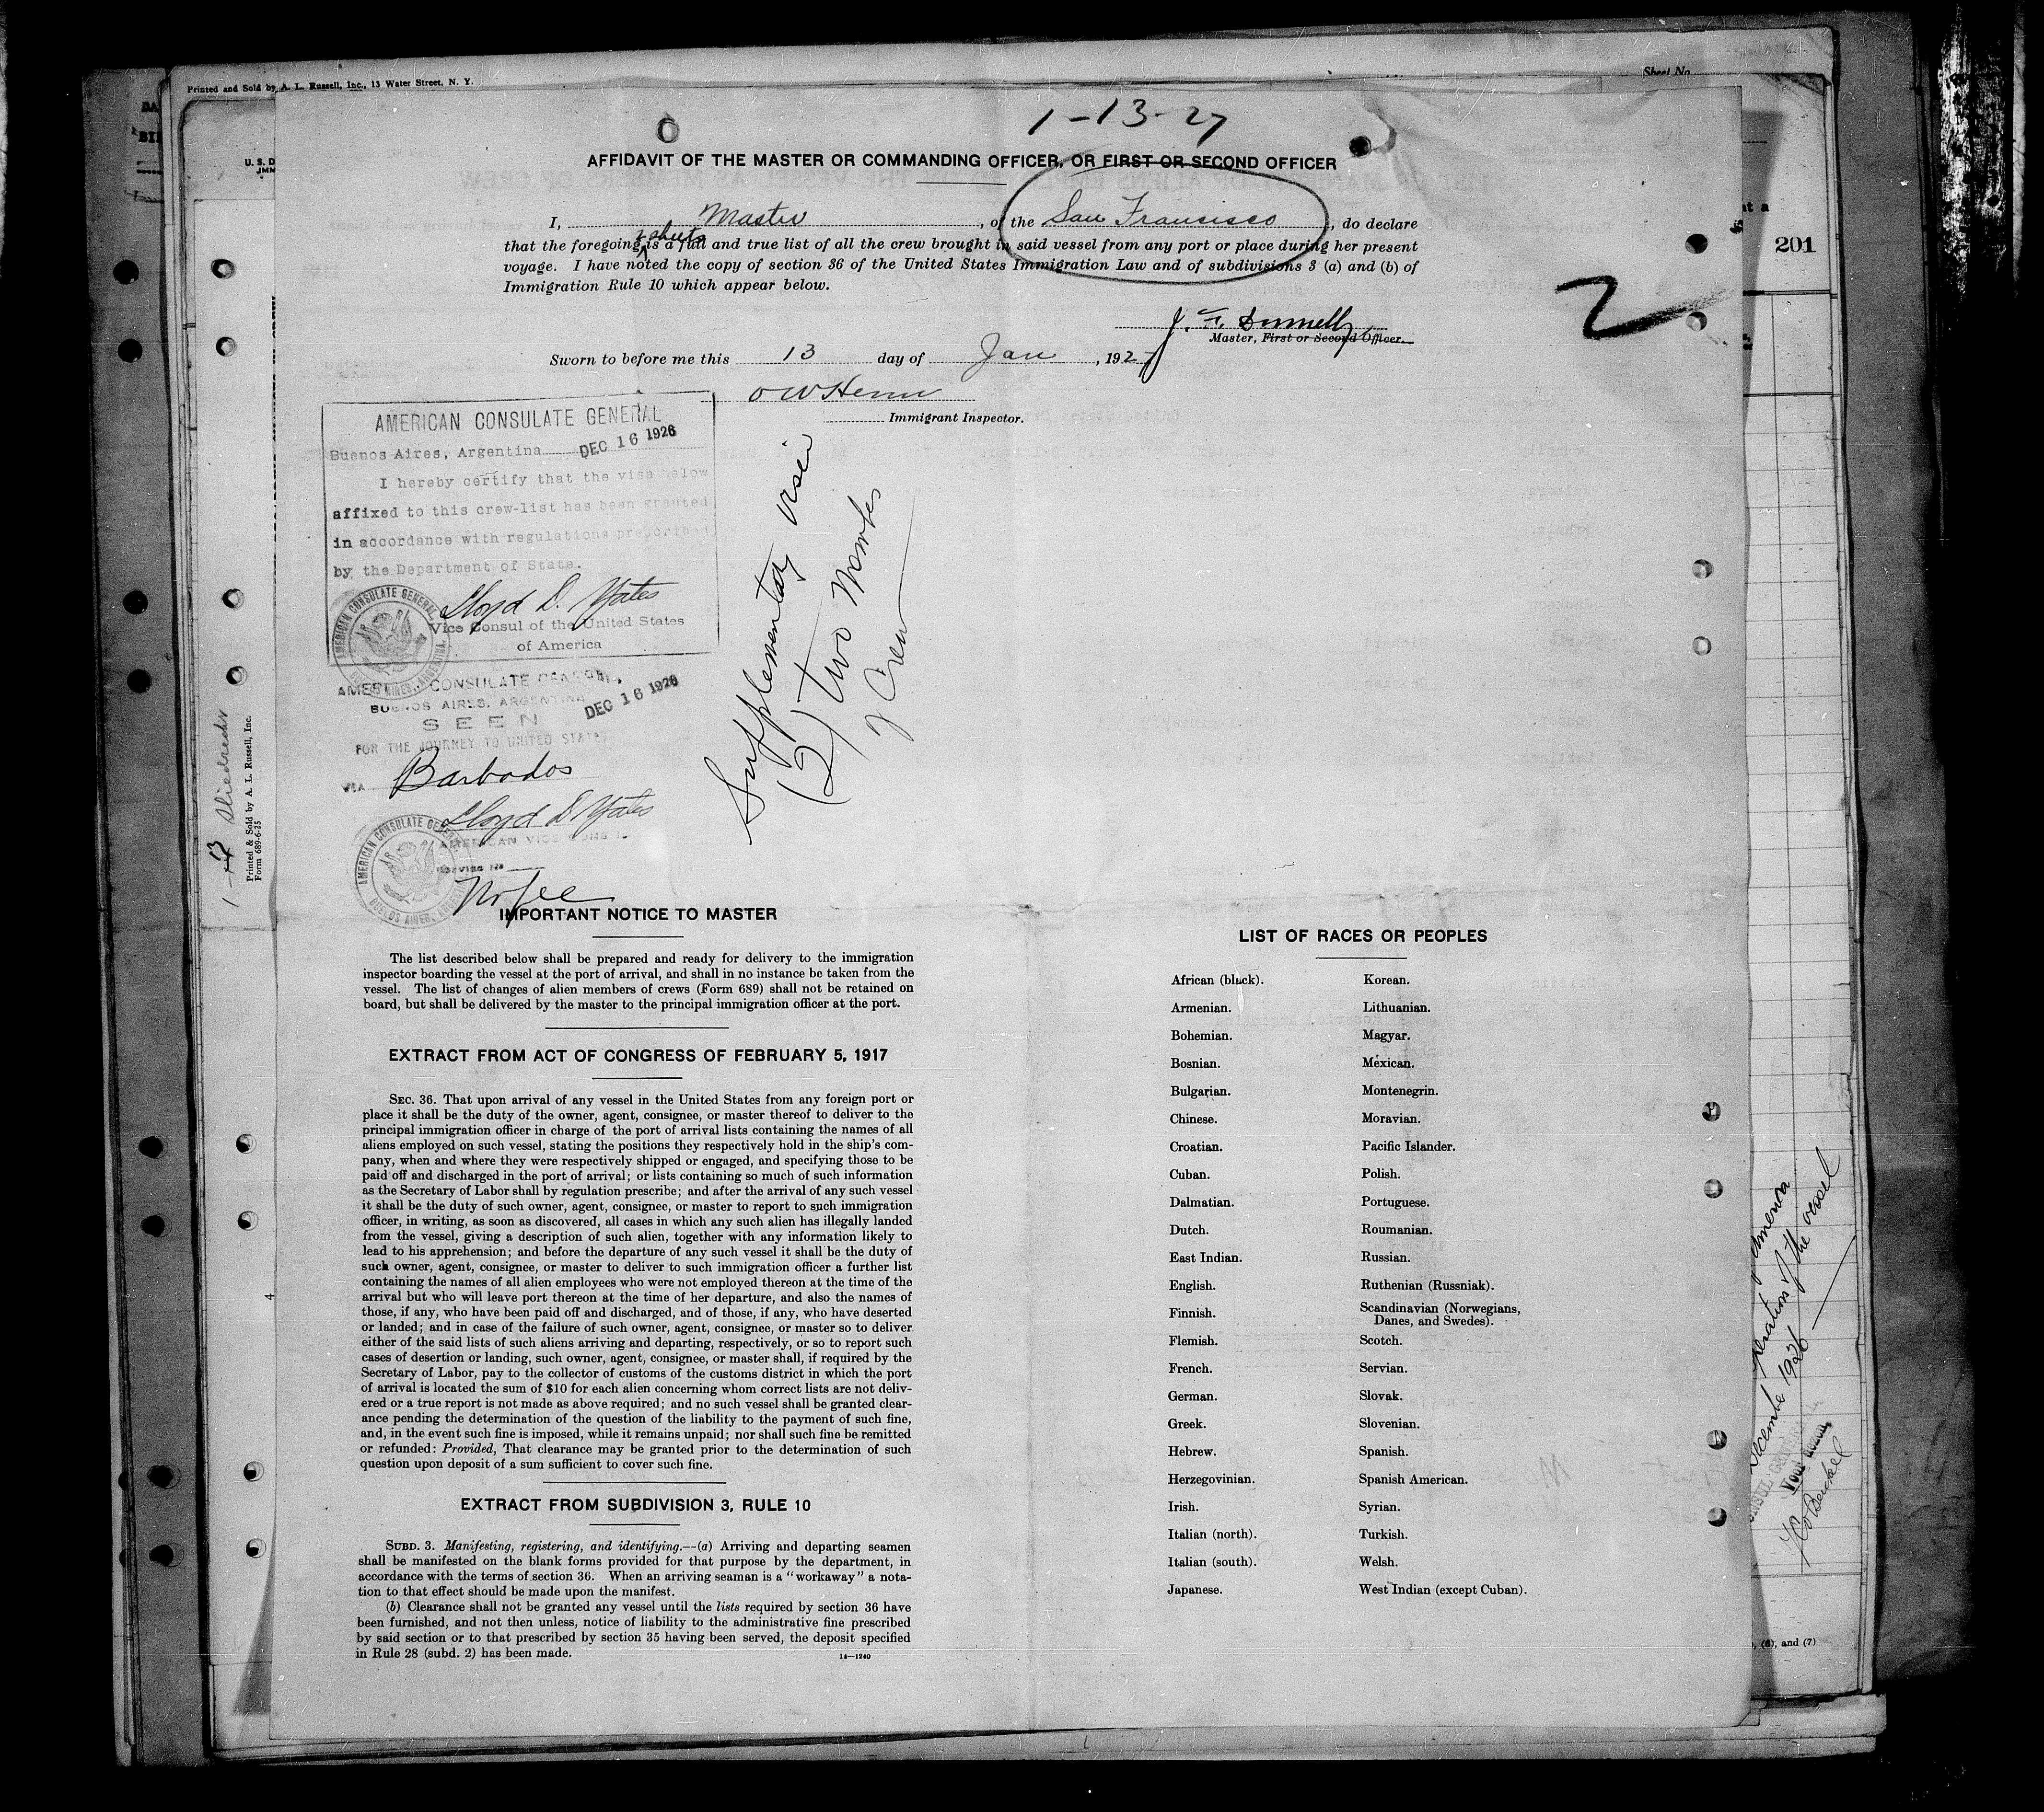 Printed and Sold by A. L. Russell, Inc., 13 Water Street, N. Y.
Sheet No.
1-13-27
AFFIDAVIT OF THE MASTER OR COMMANDING OFFICER, OR FIRST OR SECOND OFFICER
I, Master, of the San Francisco, do declare
2 sheets
that the foregoing is a full and true list of all the crew brought in said vessel from any port or place during her present
voyage. I have noted the copy of section 36 of the United States Immigration Law and of subdivisions 3 (a) and (b) of
Immigration Rule 10 which appear below.
2
Master, First or Second Officer.
Sworn to before me this 13 day of Jan, 1927
Immigrant Inspector.
AMERICAN CONSULATE GENERAL
Buenos Aires, Argentina DEC 16 1926
I hereby certify that the visa below
affixed to this crew-list has been granted
in accordance with regulations prescribed
by the Department of State.
Lloyd D. Yates
Vice Consul of the United States
of America
AMERICAN CONSULATE GENERAL
BUENOS AIRES, ARGENTINA
AMERICAN CONSULATE GENERAL
BUENOS AIRES, ARGENTINA
DEC 16 1926
SEEN
FOR THE JOURNEY TO UNITED STATES
VIA Barbados
Lloyd D. Yates
AMERICAN VICE CONSUL
Service No
No fee
AMERICAN CONSULATE GENERAL
BUENOS AIRES, ARGENTINA
Supplementary
(2) two
Crew
IMPORTANT NOTICE TO MASTER
The list described below shall be prepared and ready for delivery to the immigration
inspector boarding the vessel at the port of arrival, and shall in no instance be taken from the
vessel. The list of changes of alien members of crews (Form 689) shall not be retained on
board, but shall be delivered by the master to the principal immigration officer at the port.
EXTRACT FROM ACT OF CONGRESS OF FEBRUARY 5, 1917
SEC. 36. That upon arrival of any vessel in the United States from any foreign port or
place it shall be the duty of the owner, agent, consignee, or master thereof to deliver to the
principal immigration officer in charge of the port of arrival lists containing the names of all
aliens employed on such vessel, stating the positions they respectively hold in the ship's com-
pany, when and where they were respectively shipped or engaged, and specifying those to be
paid off and discharged in the port of arrival; or lists containing so much of such information
as the Secretary of Labor shall by regulation prescribe; and after the arrival of any such vessel
it shall be the duty of such owner, agent, consignee, or master to report to such immigration
officer, in writing, as soon as discovered, all cases in which any such alien has illegally landed
from the vessel, giving a description of such alien, together with any information likely to
lead to his apprehension; and before the departure of any such vessel it shall be the duty of
such owner, agent, consignee, or master to deliver to such immigration officer a further list
containing the names of all alien employees who were not employed thereon at the time of the
arrival but who will leave port thereon at the time of her departure, and also the names of
those, if any, who have been paid off and discharged, and of those, if any, who have deserted
or landed; and in case of the failure of such owner, agent, consignee, or master so to deliver
either of the said lists of such aliens arriving and departing, respectively, or so to report such
cases of desertion or landing, such owner, agent, consignee, or master shall, if required by the
Secretary of Labor, pay to the collector of customs of the customs district in which the port
of arrival is located the sum of $10 for each alien concerning whom correct lists are not deliv-
ered or a true report is not made as above required; and no such vessel shall be granted clear-
ance pending the determination of the question of the liability to the payment of such fine,
and, in the event such fine is imposed, while it remains unpaid; nor shall such fine be remitted
or refunded: Provided, That clearance may be granted prior to the determination of such
question upon deposit of a sum sufficient to cover such fine.
EXTRACT FROM SUBDIVISION 3, RULE 10
SUBD. 3. Manifesting, registering, and identifying.--(a) Arriving and departing seamen
shall be manifested on the blank forms provided for that purpose by the department, in
accordance with the terms of section 36. When an arriving seaman is a "workaway" a nota-
tion to that effect should be made upon the manifest.
(b) Clearance shall not be granted any vessel until the lists required by section 36 have
been furnished, and not then unless, notice of liability to the administrative fine prescribed
by said section or to that prescribed by section 35 having been served, the deposit specified
in Rule 28 (subd. 2) has been made.
14-1240
LIST OF RACES OR PEOPLES
African (black). Korean.
Armenian. Lithuanian.
Bohemian. Magyar.
Bosnian. Mexican.
Bulgarian. Montenegrin.
Chinese. Moravian.
Croatian. Pacific Islander.
Cuban. Polish.
Dalmatian. Portuguese.
Dutch. Roumanian.
East Indian. Russian.
English. Ruthenian (Russniak).
Finnish. Scandinavian (Norwegians,
Danes, and Swedes).
Flemish. Scotch.
French. Servian.
German. Slovak.
Greek. Slovenian.
Hebrew. Spanish.
Herzegovinian. Spanish American.
Irish. Syrian.
Italian (north). Turkish.
Italian (south). Welsh.
Japanese. West Indian (except Cuban).
Printed & Sold by A. L. Russell, Inc.
Form 689-6-25
4
201
of the vessel
1926
(6), and (7)